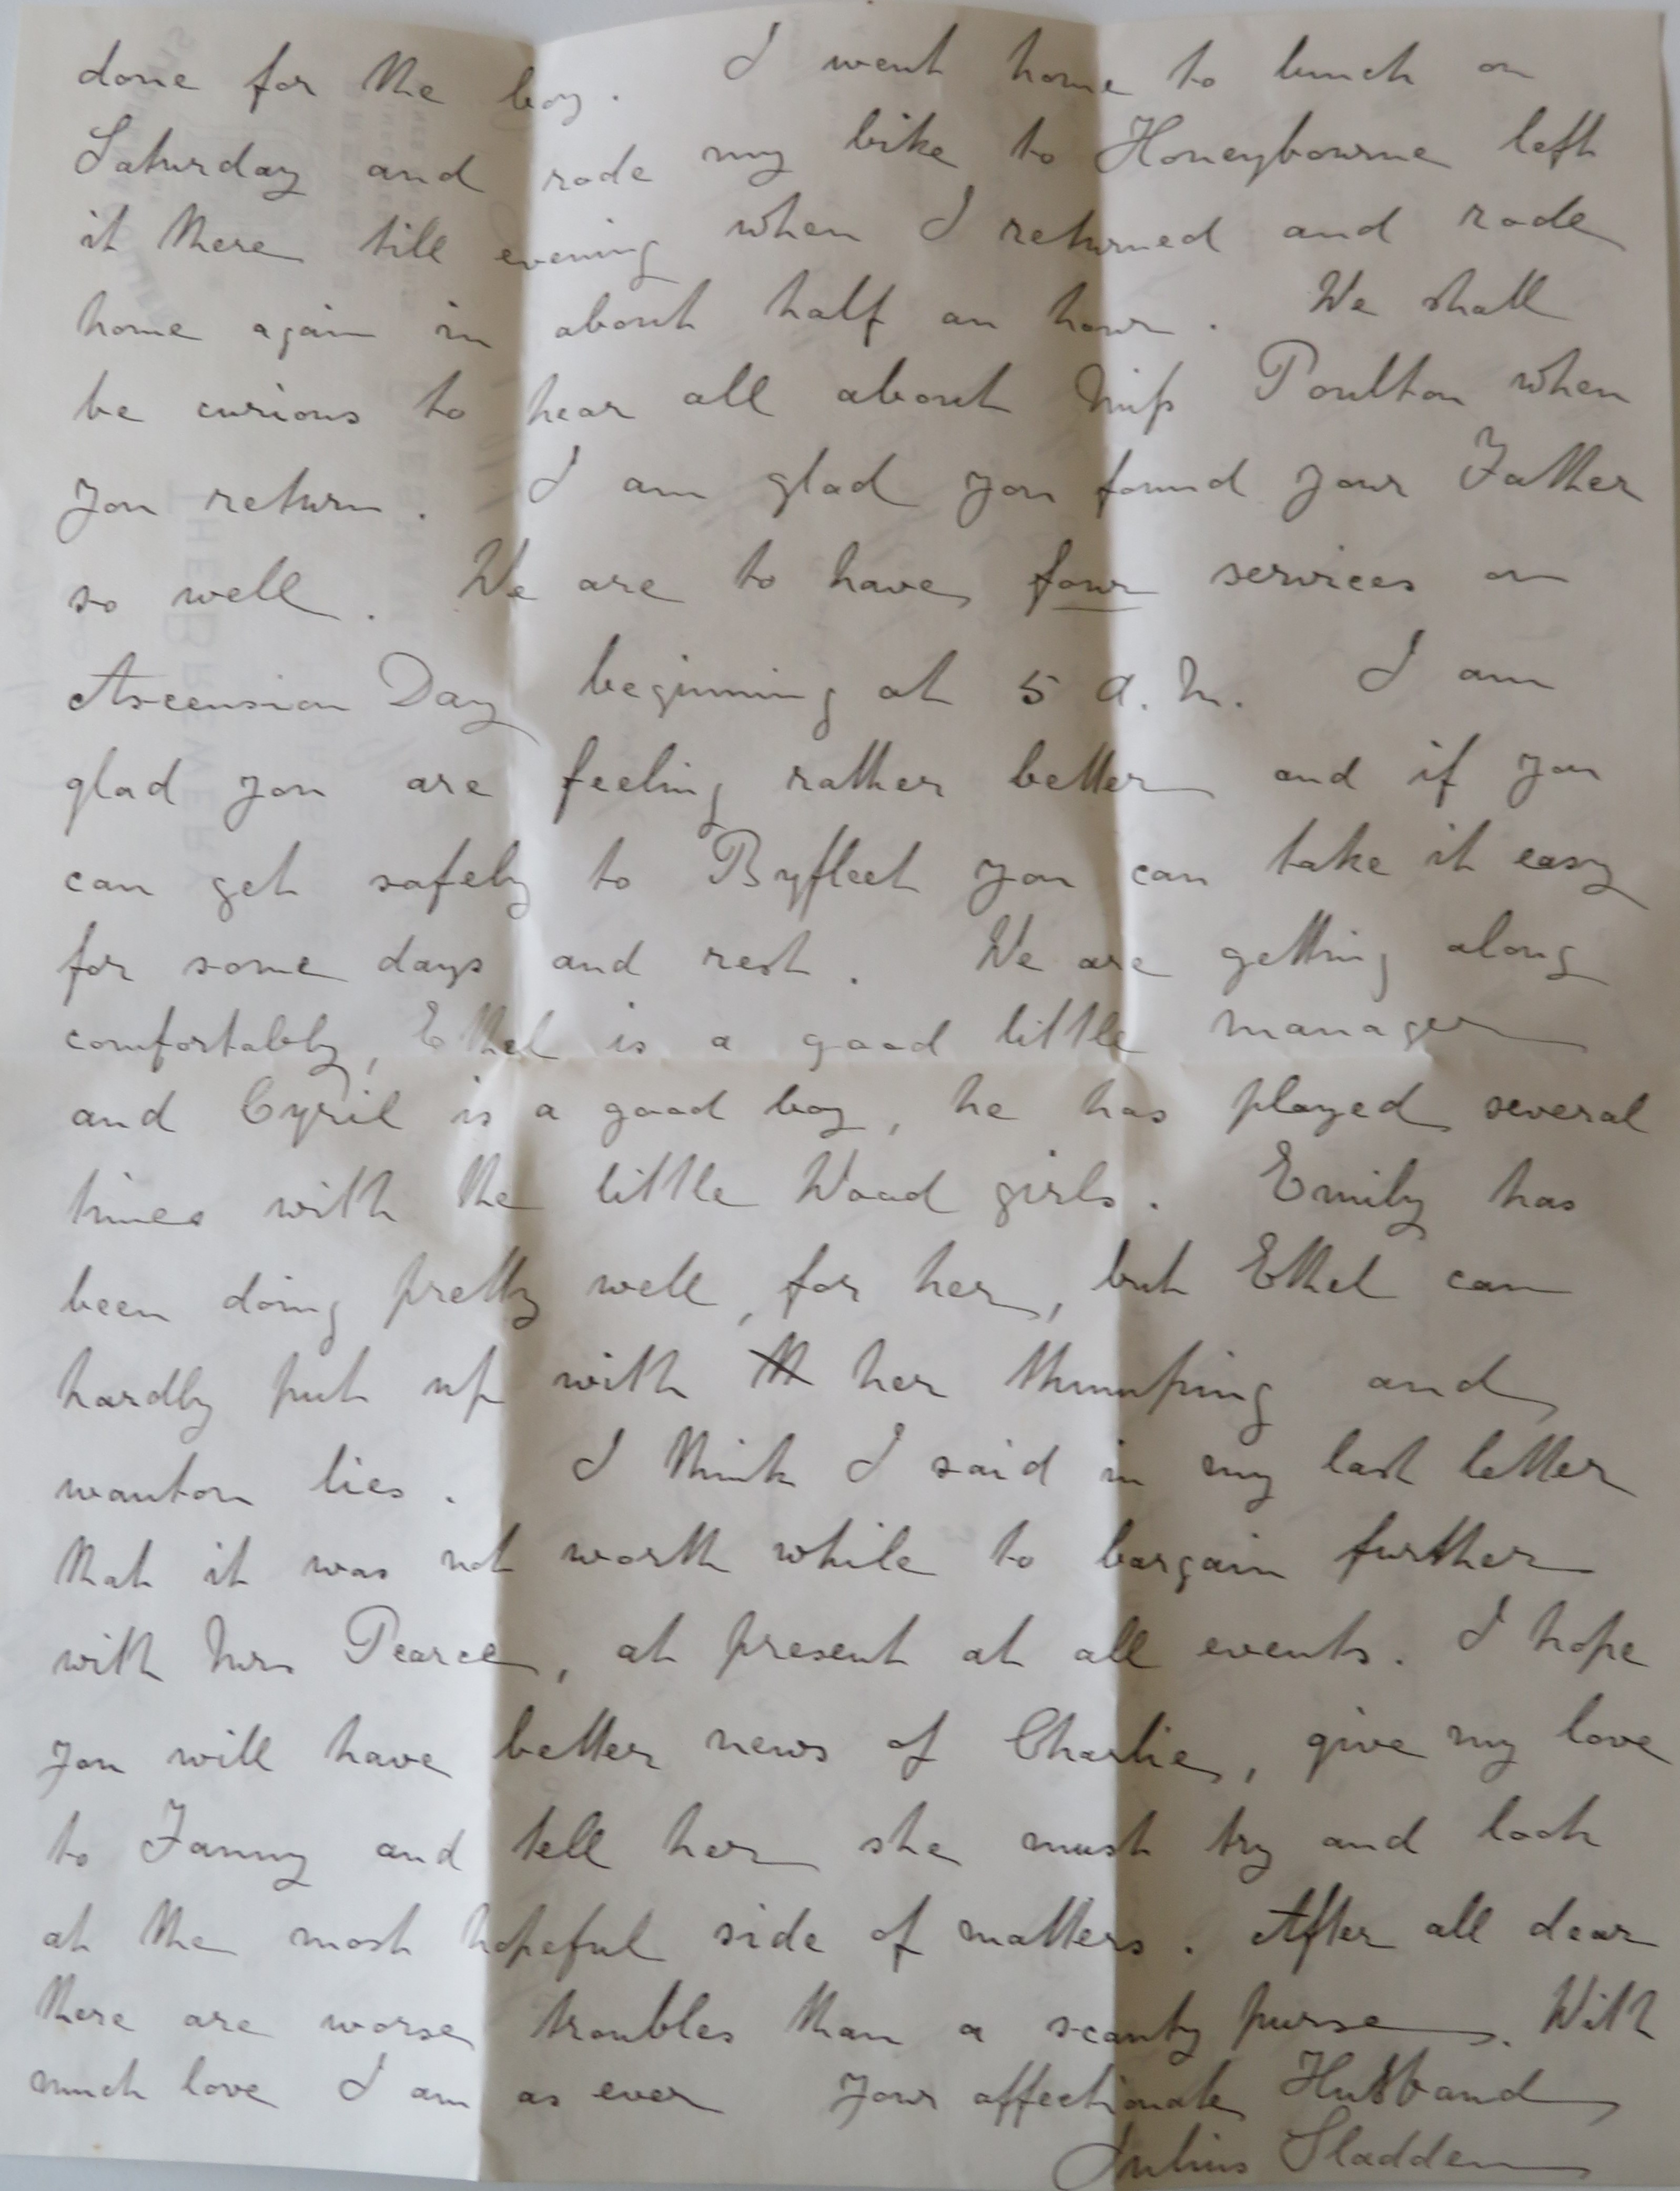 done for the boy. I went home to lunch on
Saturday and rode my bike to Honeybourne left
it there till evening when I returned and rode
home again in about half an hour. We shall
be curious to hear all about Miss Poulton when
you return. I am glad you found your Father
so well. We are to have four services on
Ascension Day beginning at 5 a.m. I am
glad you are feeling rather better and if you
can get safely to Byfleet you can take it easy
for some days and rest. We are getting along
comfortably, Ethel is a good little manager
and Cyril is a good boy, he has played several
times with the little Wood girls. Emily has
been doing pretty well, for her, but Ethel can
hardly put up with her thumping and
wanton lies. I think I said in my last letter
that it was not worth while to bargain further
with Mrs Pearce, at present at all events. I hope
you will have better news of Charlie, give my love
to Fanny and tell her she must try and look
at the most hopeful side of matters. After all dear
there are worse troubles than a scanty purse. With
much love I am as ever your affectionate Husband
Julius Sladden